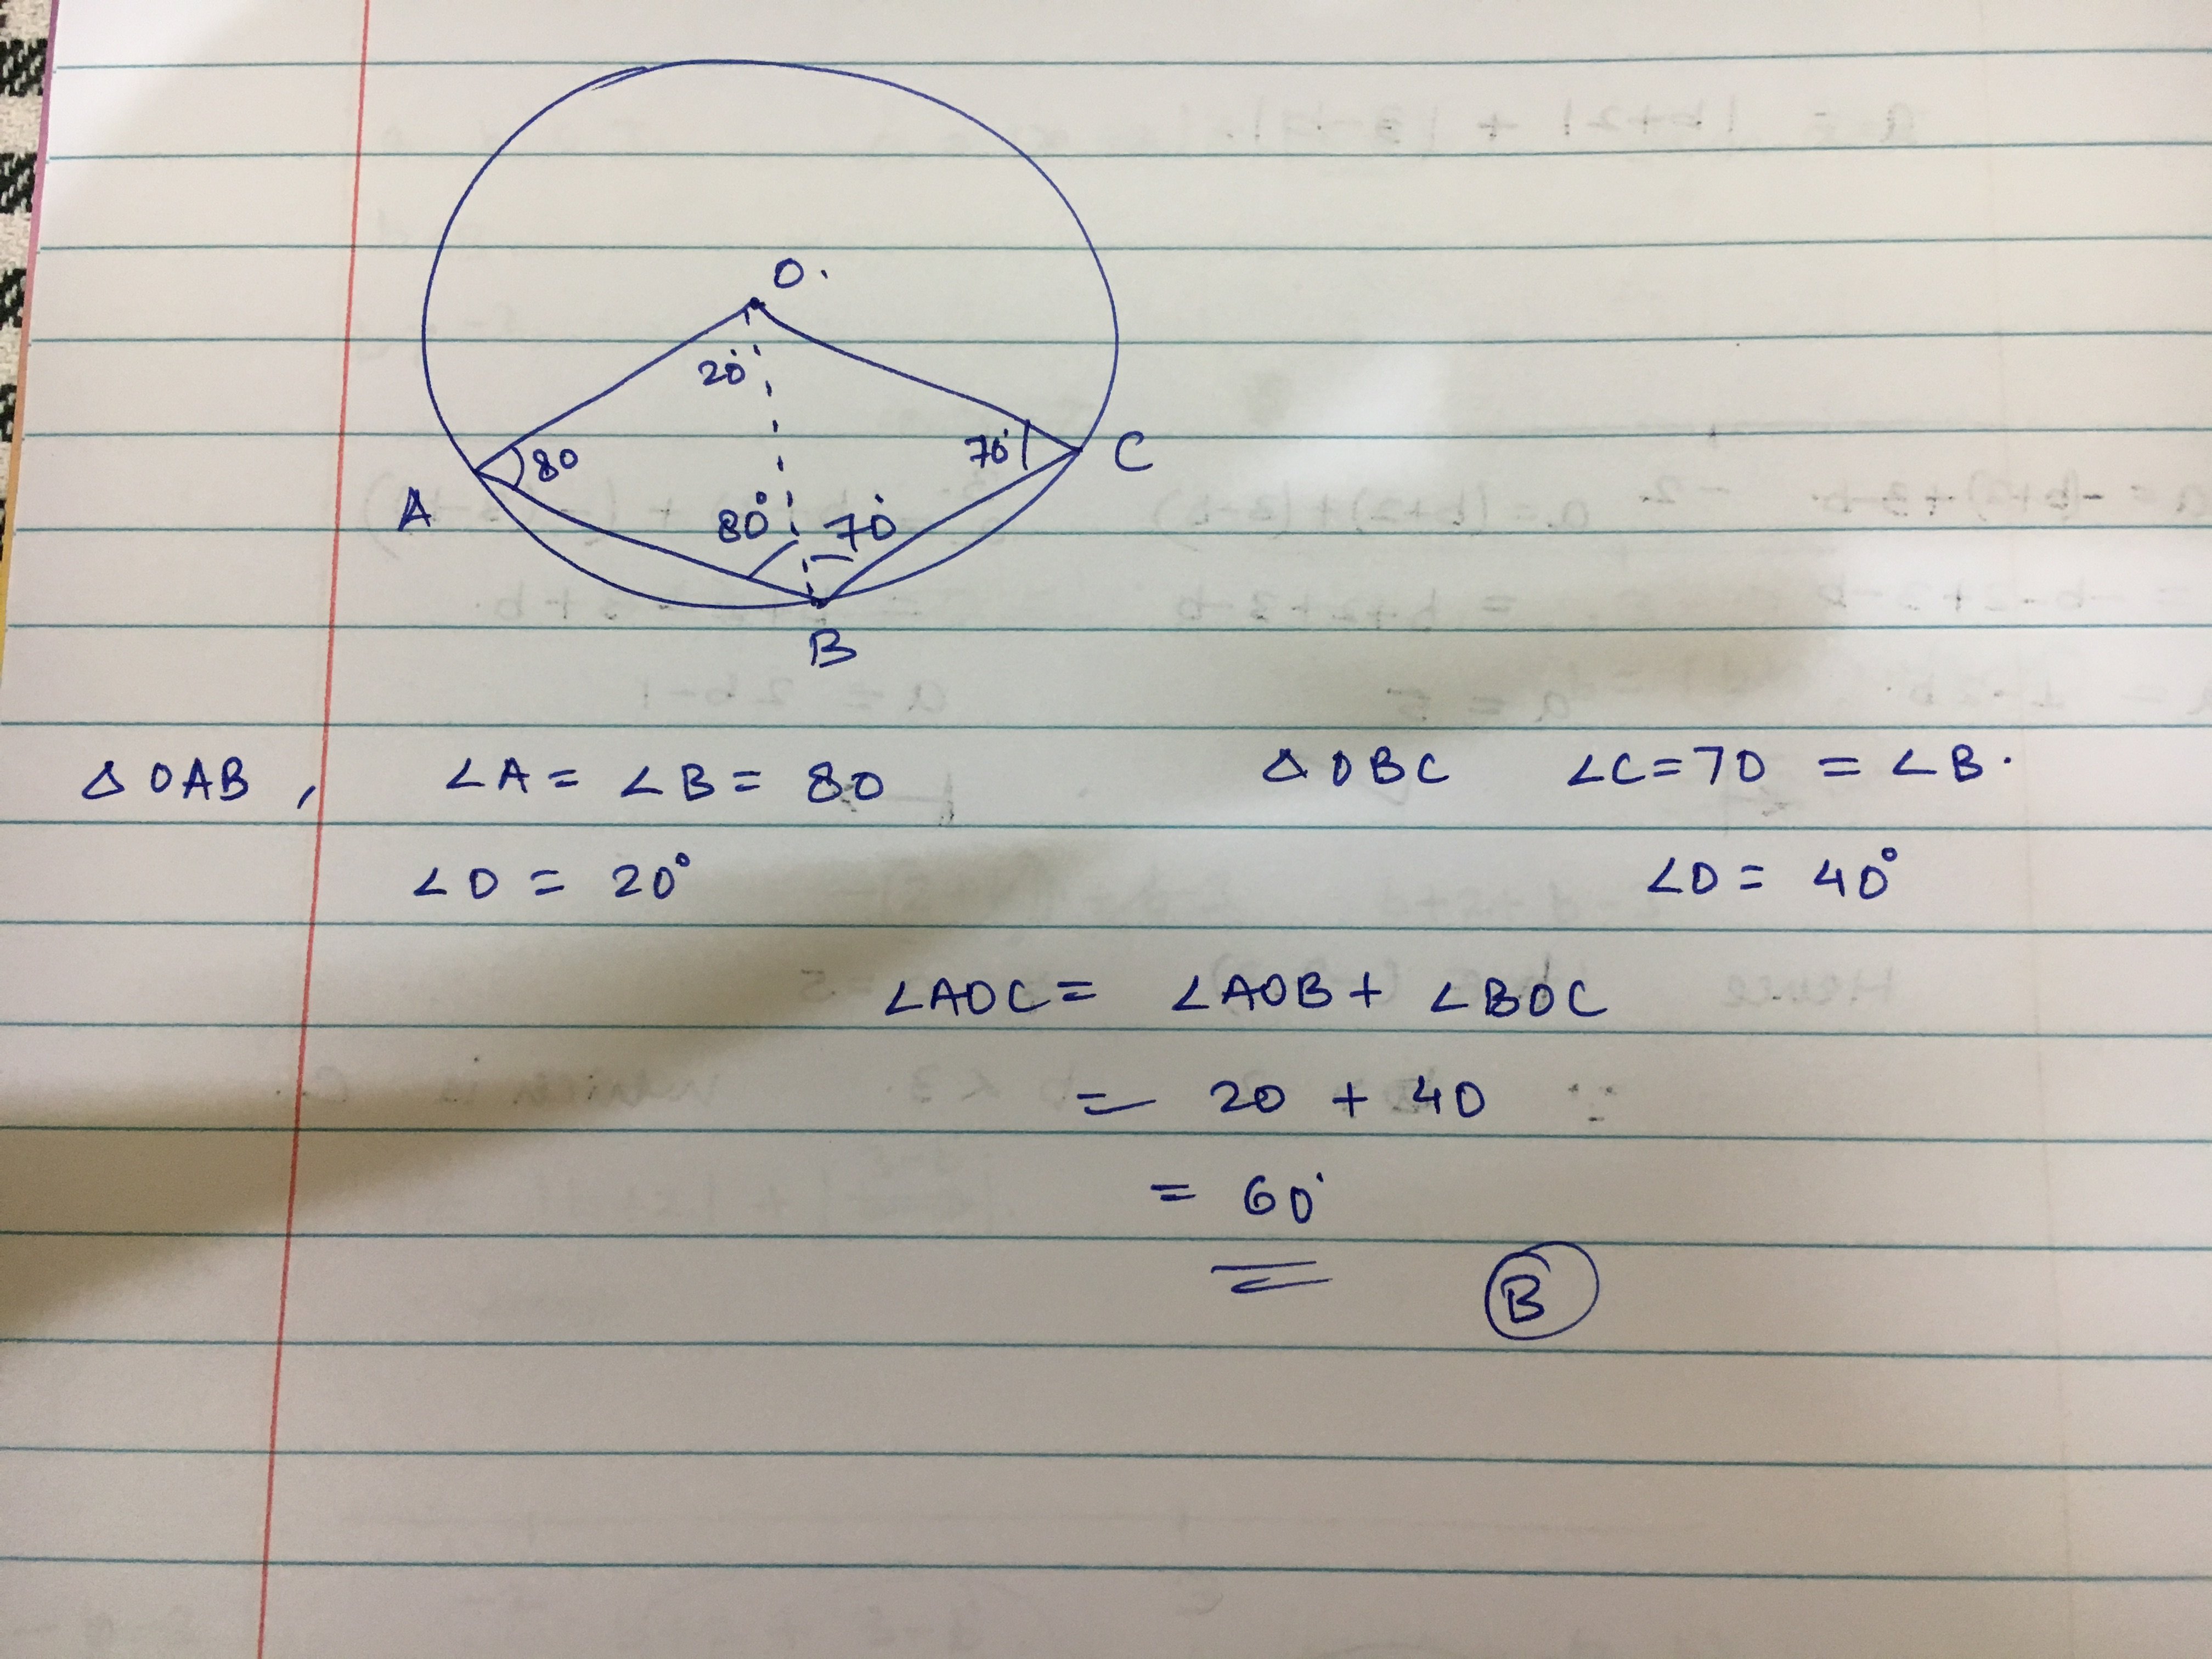 O.
20°
80
70°
C
A
80° 70°
B
△OAB, ∠A = ∠B = 80
△OBC ∠C = 70 = ∠B.
∠O = 20°
∠O = 40°
∠AOC = ∠AOB + ∠BOC
= 20 + 40
= 60°
B